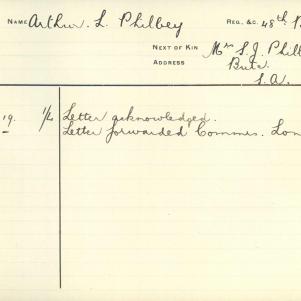 NAME Arthur. L. Philbey REG., &C. 48th
NEXT OF KIN Mrs S. J. Philb
ADDRESS Bute
S.A.
19. 1/4 Letter acknowledged.
Letter forwarded Commis. Lon